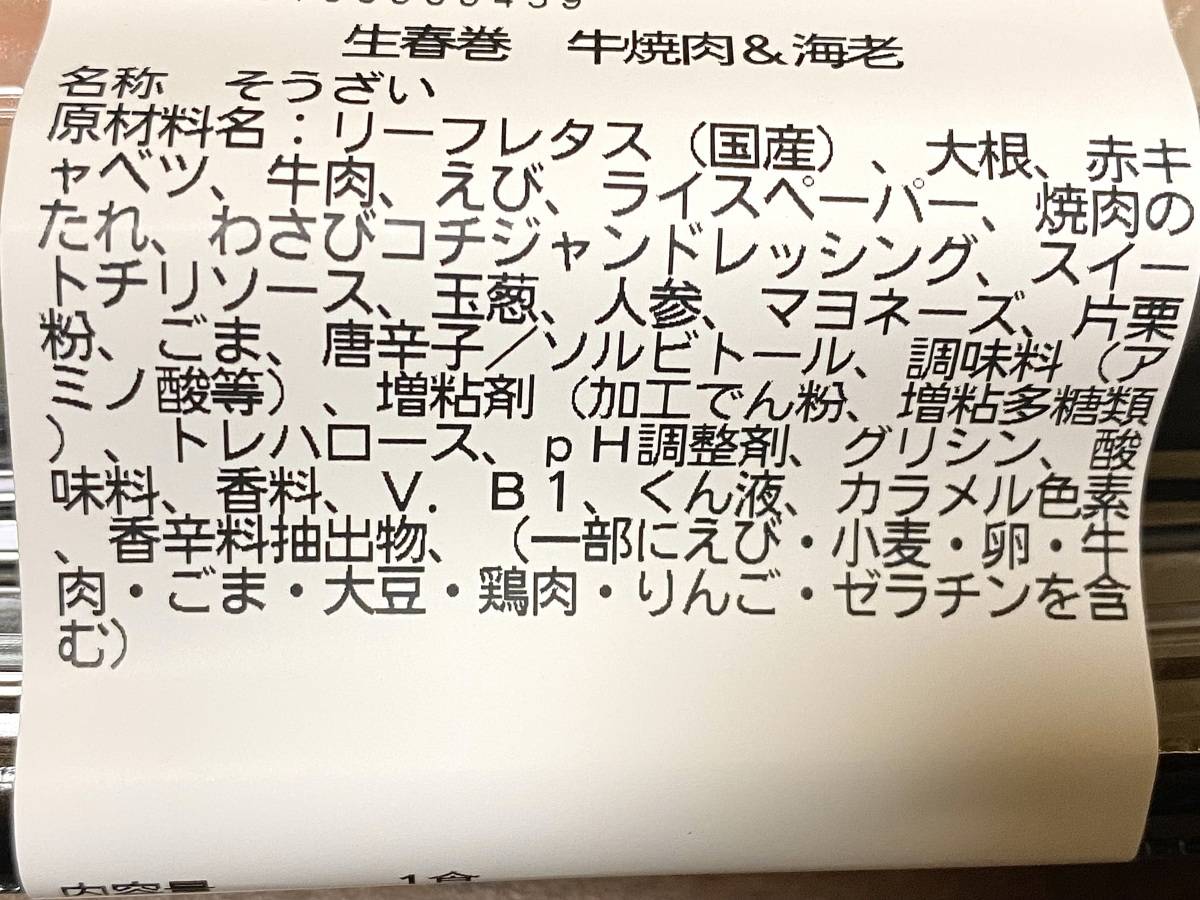 生春巻 牛焼肉&海老
名称 そうざい
原材料名:リーフレタス(国産)、大根、赤キ
ャベツ、牛肉、えび、ライスペーパー、焼肉の
たれ、わさびコチジャンドレッシング、スイー
トチリソース、玉葱、人参、マヨネーズ、片栗
粉、ごま、唐辛子/ソルビトール、調味料(ア
ミノ酸等)、増粘剤(加工でん粉、増粘多糖類
)、トレハロース、pH調整剤、グリシン、酸
味料、香料、V.B1、くん液、カラメル色素
、香辛料抽出物、(一部にえび・小麦・卵・牛
肉・ごま・大豆・鶏肉・りんご・ゼラチンを含
む)
内容量 1食